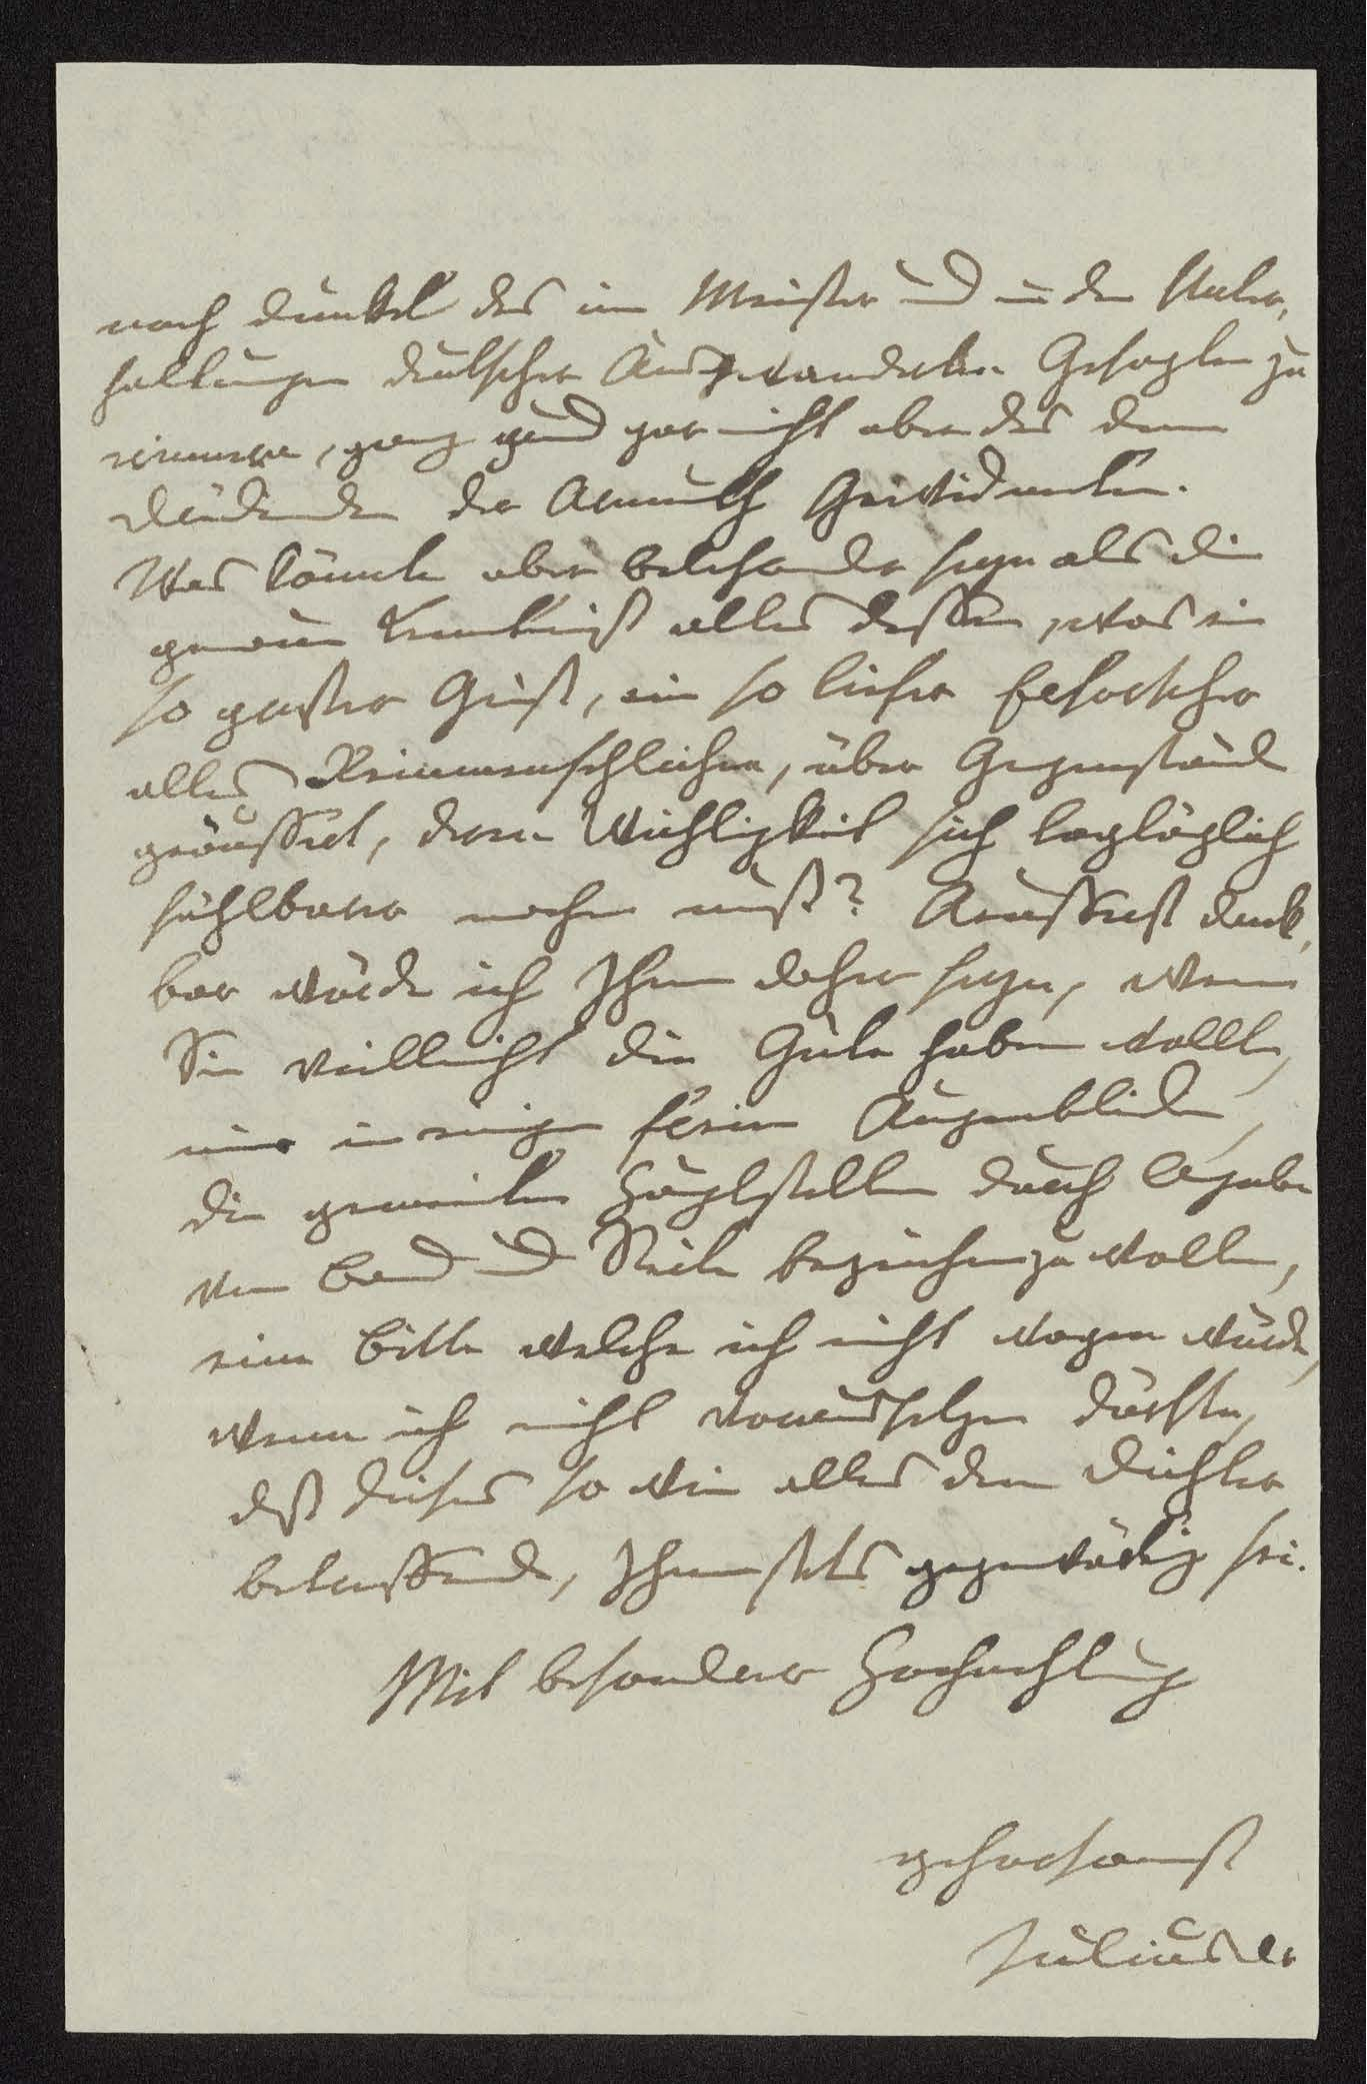 noch dunkel das im Meister und in den Unter-
haltungen deutscher Ausgewanderten Gesagten zu
erinnern, ganz und gar nicht aber des dem
der Armuth Gewidmeten.
Was könnte aber belehrender seyn als die
genaue Kenntniß alles dessen, was ein
so großer Geist, ein so tiefer Erforscher
alles Reinmenschlichen, über Gegenstände
geäussert, deren Wichtigkeit sich tagtäglich
fühlbarer machen muß? Aeusserst dank-
bar würde ich Ihnen daher seyn, wenn
Sie vielleicht die Güte haben wollten,
mir in einigen freien Augenblicken,
die gemeinten Hauptstellen durch Angabe
von Band und Seite bezeichnen zu wollen,
eine Bitte welche ich nicht wagen würde,
wenn ich nicht voraussetzen dürfte,
daß dieses so wie alles den Dichter
betreffende, Ihnen stets gegenwärtig sei.
Mit besonderer Hochachtung
gehorsamst
Julius